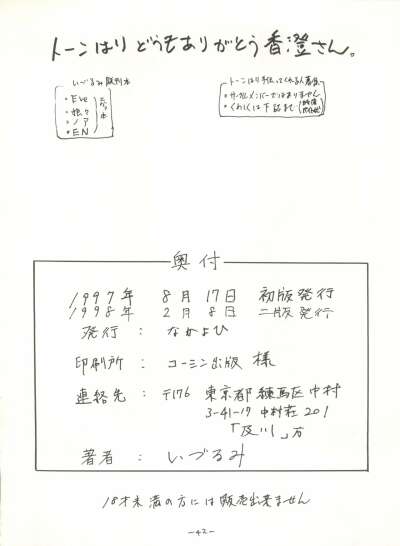 トーンはり どうもありがとう 香澄さん。
いづるみ既刊本
・Eve
・狼々
・ノア
・EN
トーンはり手伝ってくれる人募集
・サークルメンバーではありません
・くわしくは下記まで
奥付
1997年 8月 17日 初版発行
1998年 2月 8日 二版発行
発行 : なかよひ
印刷所 : コーミン出版 様
連絡先 : 〒176 東京都練馬区中村
3-41-17 中村荘 201
「及川」方
著者 : いづるみ
18才未満の方には販売出来ません
-42-